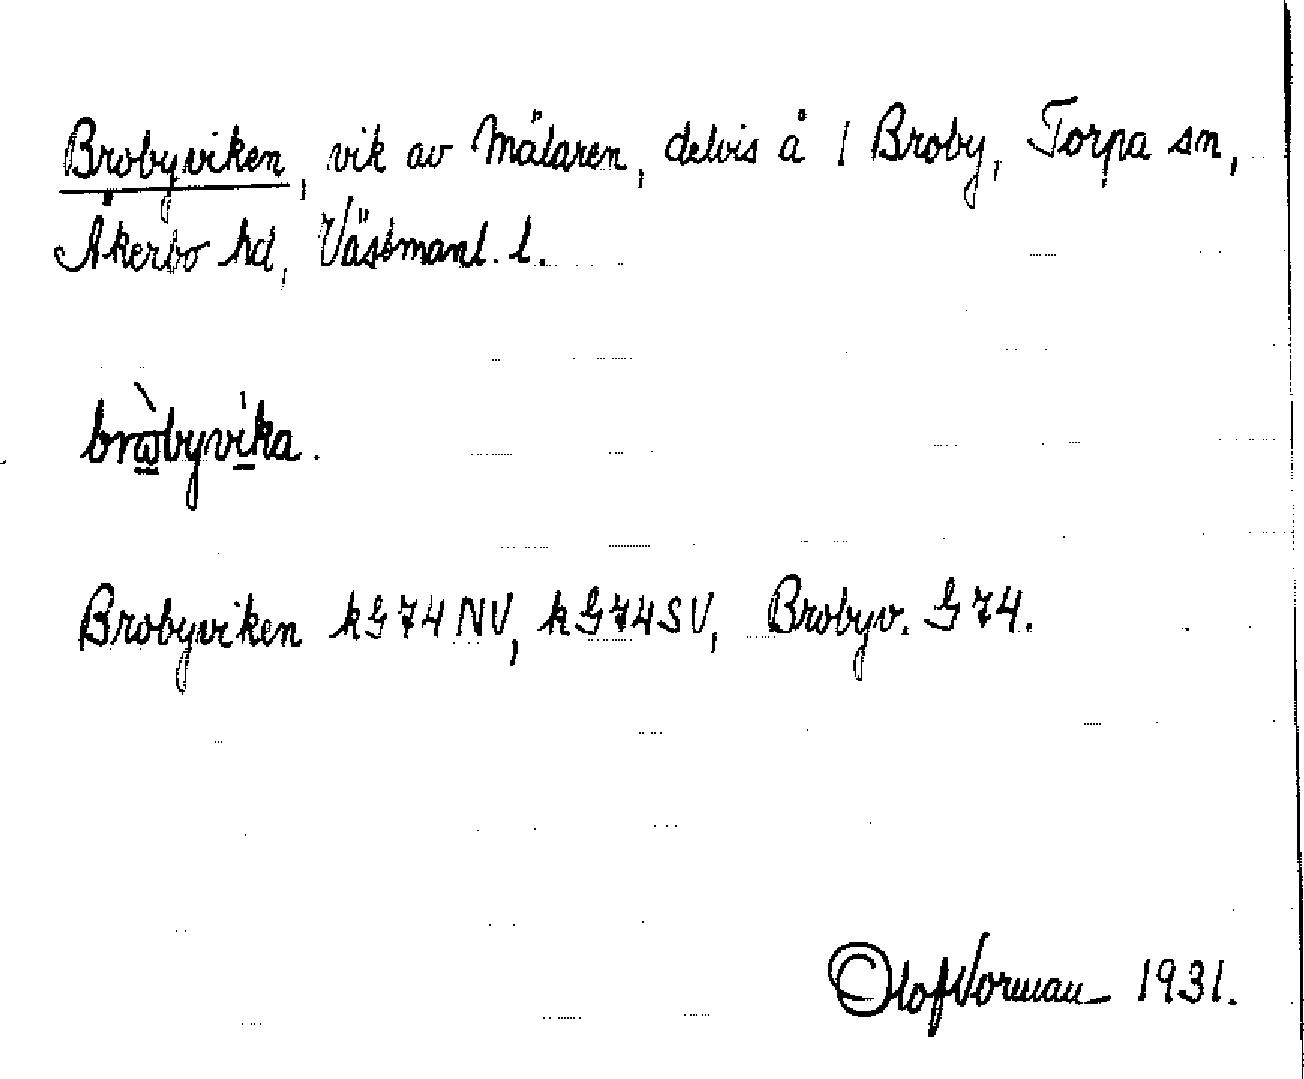 Brobyviken, vik av Mälaren, delvis å 1 Broby, Torpa sn,
Åkerbo hd, Västmanl. l.
brꞷ̀byvi̍ka.
Brobyviken kG74NV, kG74SV, Brobyv. G74.
Olof Norman 1931.